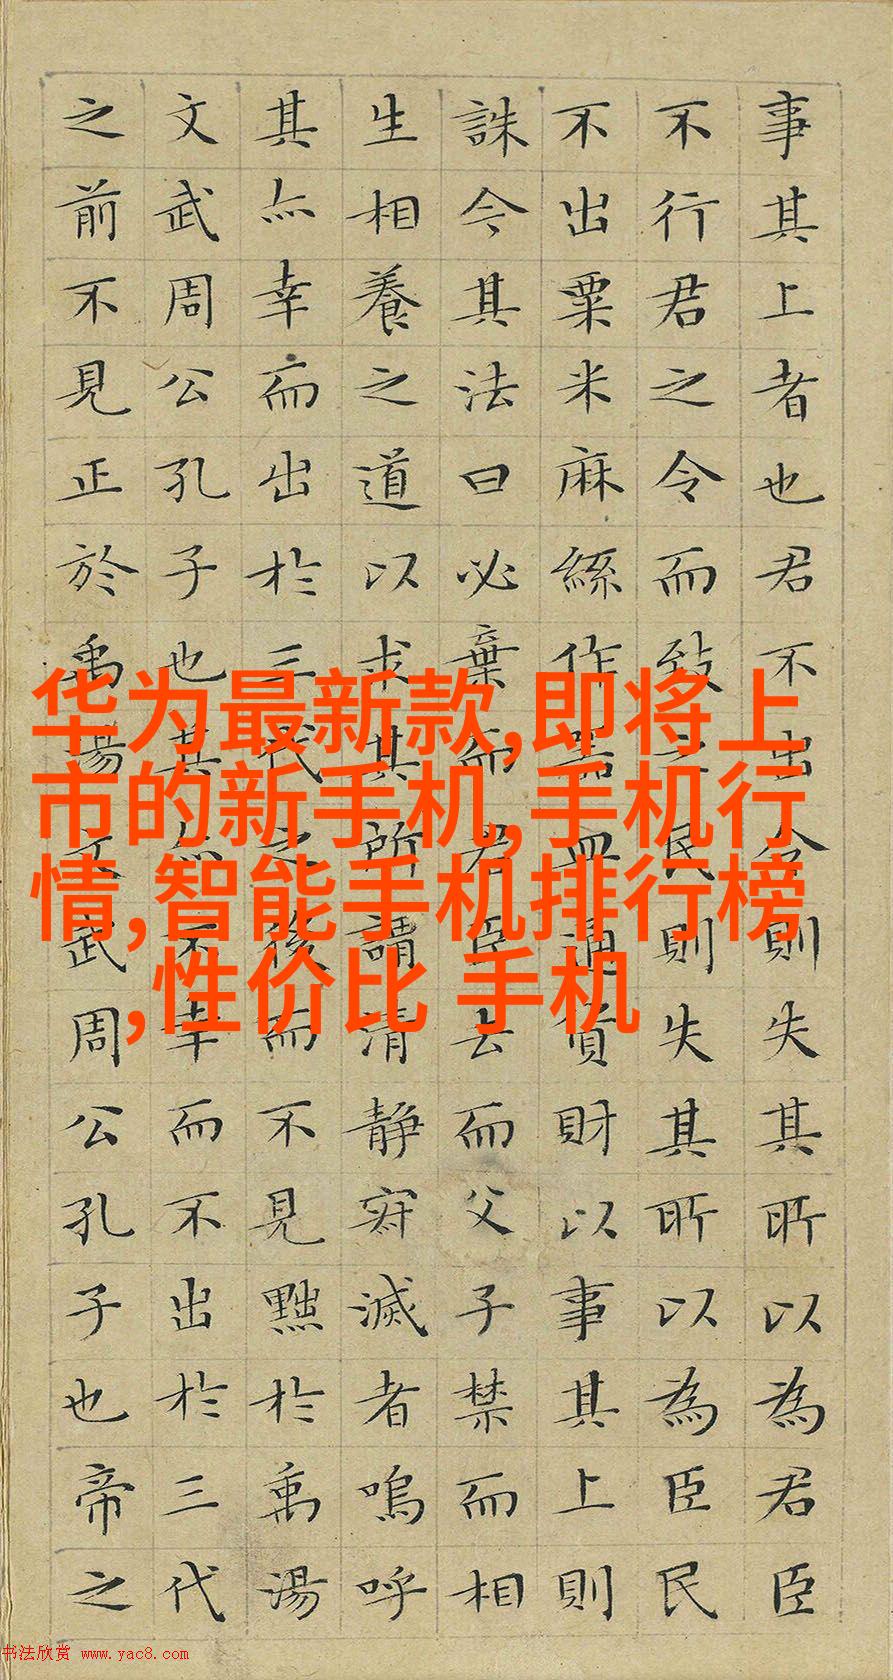 事其上者也君不出令則失其所以為君臣
不行君之令而致之民則失其所以為臣民
不出粟米麻絲作器皿通貨財以事其上則
誅今其法曰必棄而君臣去而父子禁而相
生相養之道以求其所謂清靜寂滅者嗚呼
其亦幸而出於三代之後而不見黜於禹湯
文武周公孔子也其亦不幸而不出於三代
之前不見正於禹湯文武周公孔子也帝之
华为最新款,即将上
市的新手机,手机行
情,智能手机排行榜
,性价比 手机
书法欣赏 www.yac8.com